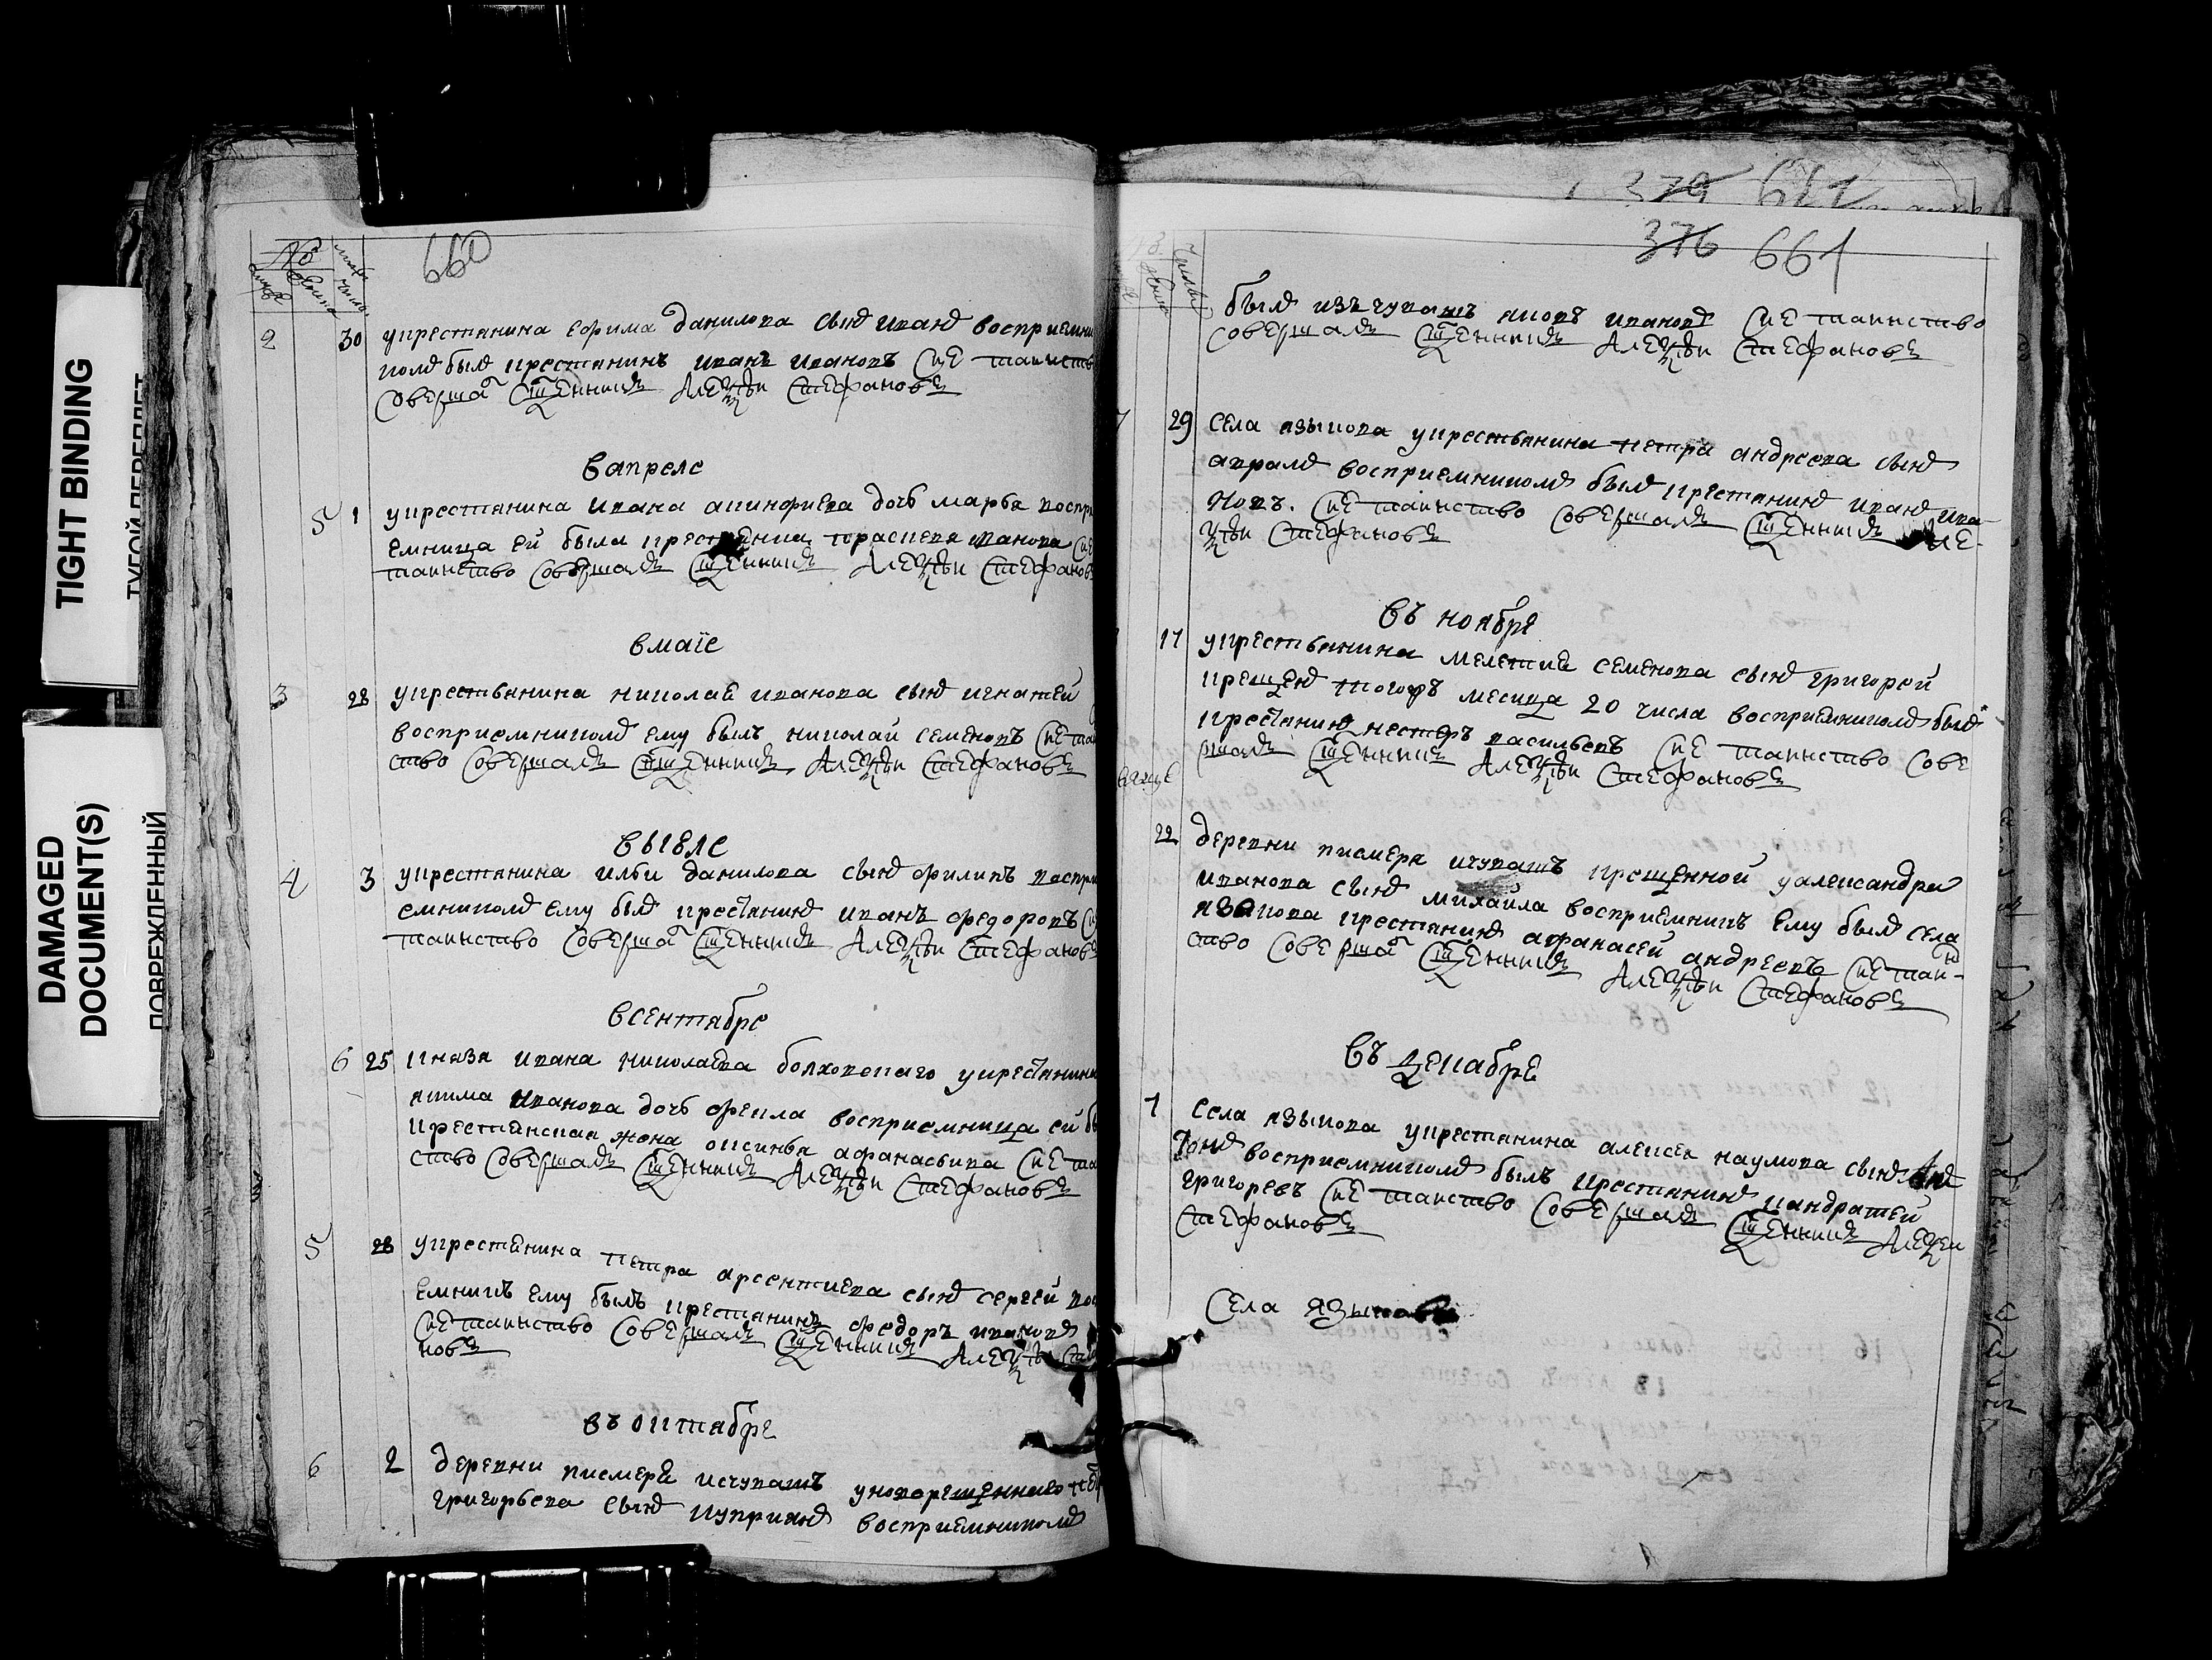 TIGHT BINDING
ТУГОЙ ПЕРЕПЛЕТ
DAMAGED
DOCUMENT(S)
ПОВРЕЖДЕННЫЙ
660
№
число
2 30 укрестьянина ефима данилова сынъ иванъ восприемни
комъ былъ крестянинъ иванъ ивановъ сие таинств
совершалъ священникъ Алеѯѣи Стефановъ
в апреле
5 1 укрестянина ивана акинфиева дочь марѳа воспри
емница ей была крестянина параскева иванова сие
таинство совершалъ священникъ Алеѯѣи Стефановъ
в маїе
3 28 укрестьянина николая иванова сынъ игнатей
восприемникомъ ему былъ николай семеновъ сие таи
ство совершалъ священникъ Алеѯѣи Стефановъ
в июле
4 3 укрестянина ильи данилова сынъ филипъ воспри
емникомъ ему былъ крестянинъ иванъ федоровъ
таинство соверша священникъ Алеѯѣи Стефановъ
в сентябре
6 25 князя ивана николаева болховскаго укрестянина
якима иванова дочь фекла восприемница ей бы
крестьянская жена аксинья афанасьива сие та
ство совершалъ священникъ Алеѯѣи Стефановъ
5 28 укрестянина петра арсентиева сынъ сергей вос
емникъ ему былъ крестянинъ федоръ ивановъ
сие таинство совершалъ священникъ Алеѯѣ Сте
новъ
въ октябре
6 2 деревни писмеря исчувашъ уновокрещеннаго
григорьева сынъ куприянъ восприемникомъ
379
376 661
былъ изъ чувашъ яковъ ивановъ сие таинство
совершалъ священникъ Алеѯѣи Стефановъ
7 29 села языкова укрестьянина петра андреева сынъ
аврамъ восприемникомъ былъ крестянинъ иванъ ива
новъ. сие таинство совершалъ священникъ
ѯѣи Стефановъ
въ ноябре
17 укрестьянина мелетия семенова сынъ григорей
крещенъ тогожъ месяца 20 числа восприемникомъ былъ
крестянинъ нестеръ васильевъ сие таинство сове
ршалъ священникъ Алеѯѣи Стефановъ
22 деревни писмеря исчувашъ крещенной уалександра
иванова сынъ михайла восприемникъ ему былъ села
языкова крестянинъ афанасей андреевъ сие таин-
ство соверша священникъ Алеѯѣи Стефановъ
въ декабре
1 села языкова укрестянина алексея наумова сынъ
восприемникомъ былъ крестянинъ кандратей
григоревъ сие таиство совершалъ священникъ Алеѯеи
Стефановъ
Села языкова